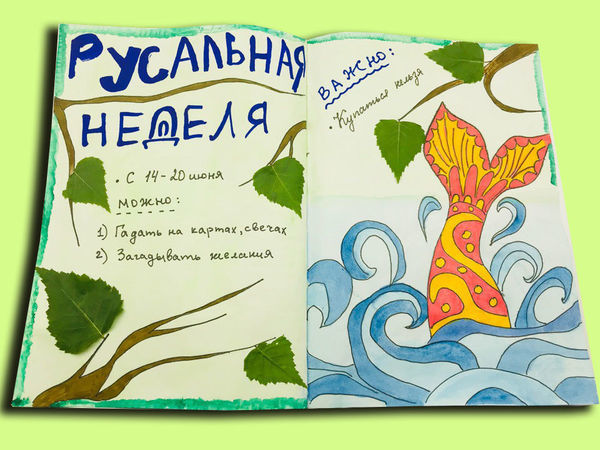 РУСАЛЬНАЯ
НЕДЕЛЯ
• С 14-20 июня
МОЖНО:
1) Гадать на картах, свечах
2) Загадывать желания
ВАЖНО:
• Купаться нельзя